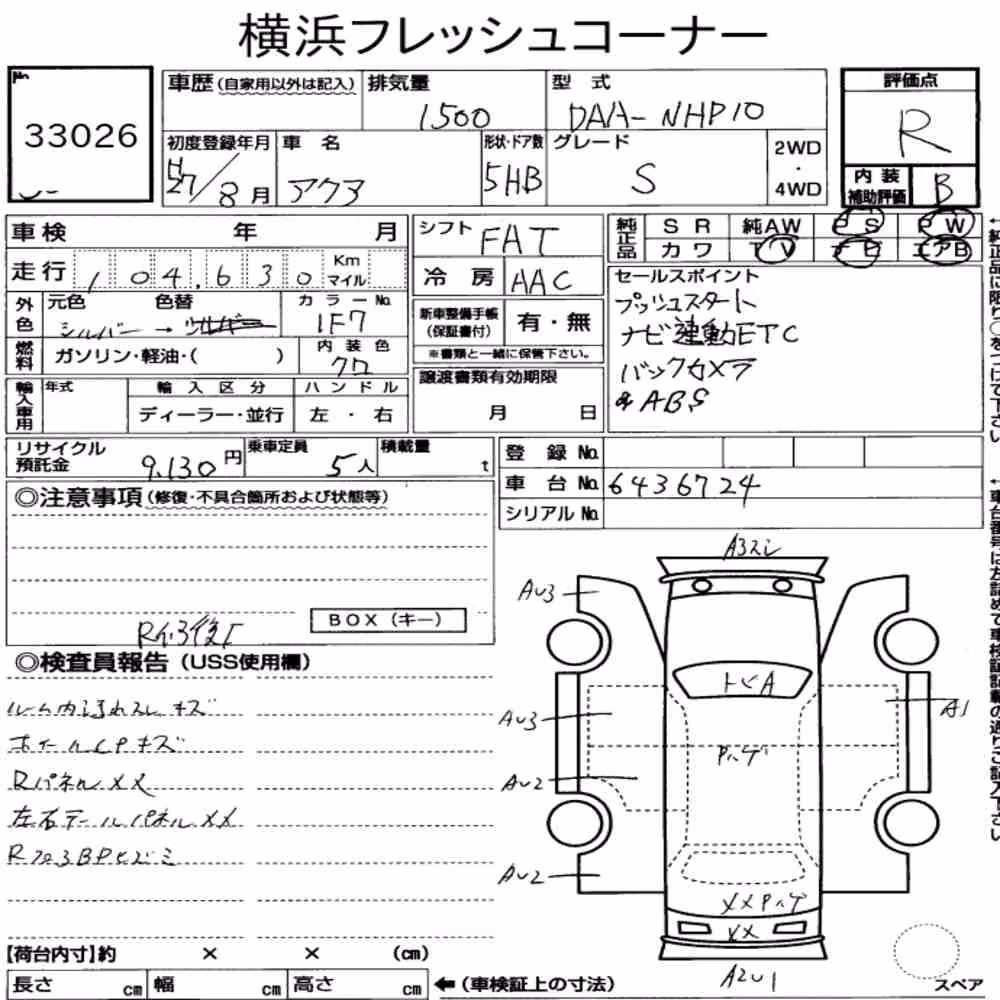 横浜フレッシュコーナー
No.
33026
車歴(自家用以外は記入)
排気量
1500
型式
DAA-NHP10
評価点
R
初度登録年月
H27/8月
車名
アクア
形状・ドア数
5HB
グレード
S
2WD
・
4WD
内装
補助評価
B
車検 年 月
シフト
FAT
純正品
SR 純AW PS PW
カワ TV ナビ エアB
走行 104,630 Km
マイル
冷房
AAC
セールスポイント
プッシュスタート
ナビ連動ETC
バックカメラ
ABS
外色
元色 色替 カラーNo.
シルバー → 1F7
新車整備手帳
(保証書付)
有・無
※書類と一緒に保管下さい。
燃料
ガソリン・軽油・( )
内装色
クロ
譲渡書類有効期限
月 日
輸入車用
年式 輸入区分 ハンドル
ディーラー・並行 左・右
リサイクル
預託金
9,130円
乗車定員
5人
積載量
t
登録No.
車台No. 6436724
シリアルNo.
←純正品に限り○をつけて下さい
←車台番号は左詰めで車検証記載の通りご記入下さい
◎注意事項(修復・不具合箇所および状態等)
BOX(キー)
◎検査員報告(USS使用欄)
ルーム内汚れスレキズ
ホイールCPキズ
RパネルXX
左右テールパネルXX
A3スレ
AU3
トビA
AU3
A1
Pハゲ
AU2
AU2
XXPハゲ
XX
A2U1
スペア
【荷台内寸】約 × × (cm)
長さ cm 幅 cm 高さ cm ←(車検証上の寸法)